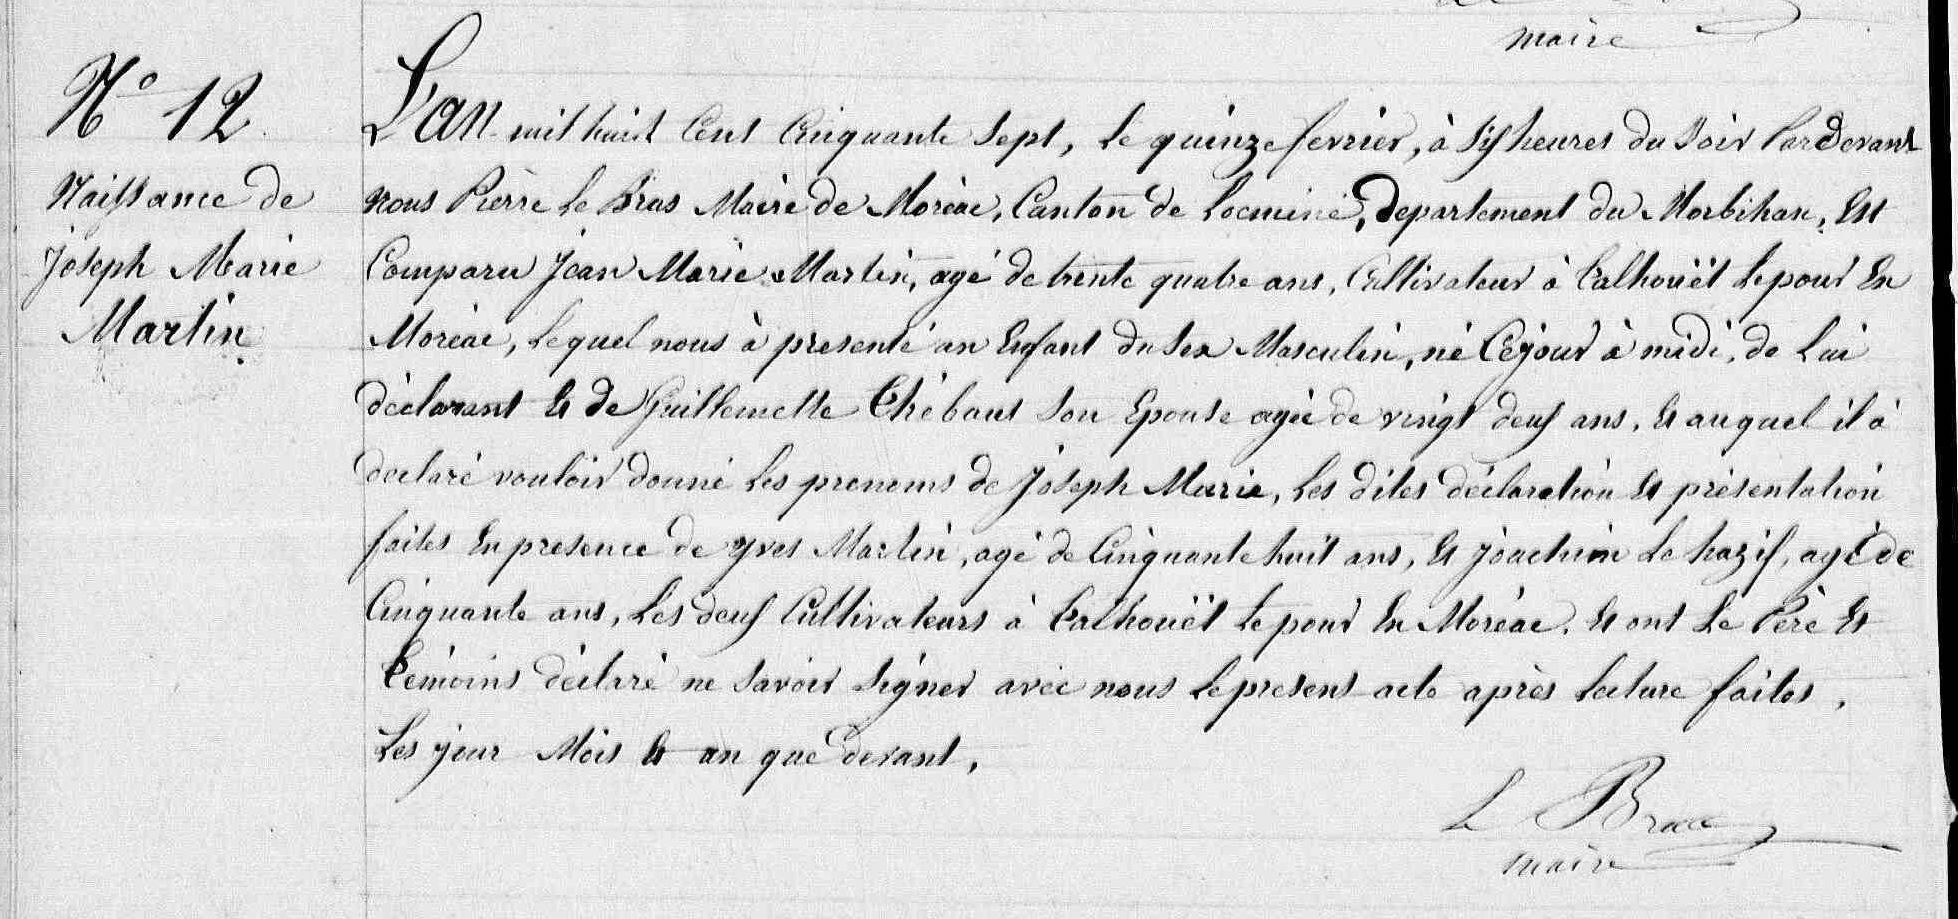 maire
N° 12
Naissance de
Joseph Marie
Martin
L'an mil huit Cent Cinquante Sept, le quinze fevrier, à Six heures du Soir Par Devant
nous Pierre Le Bras Maire de Moréac, Canton de Locminé, departement du Morbihan, Est
Comparu Jean Marie Martin, agé de trente quatre ans, Cultivateur à Talhouët Le pour En
Moréac, Lequel nous à presenté un Enfant du Sex Masculin, né Cejour à midi, de Lui
déclarant Et de Guillemette Thébaut Son Epouse agée de vingt deux ans, Et auquel il à
declaré vouloir donné Les prenoms de Joseph Marie, Les dites déclaration Et présentation
faites En presence de yves Martin, agé de Cinquante huit ans, Et joachim Le hazif, agé de
Cinquante ans, Les deux Cultivateurs à Talhouët Le pour En Moréac. Et ont Le Père Et
Témoins déclaré ne Savoir Signer avec nous Le present acte après Lecture faites,
Les jour Mois Et an que devant,
Le Bras
maire